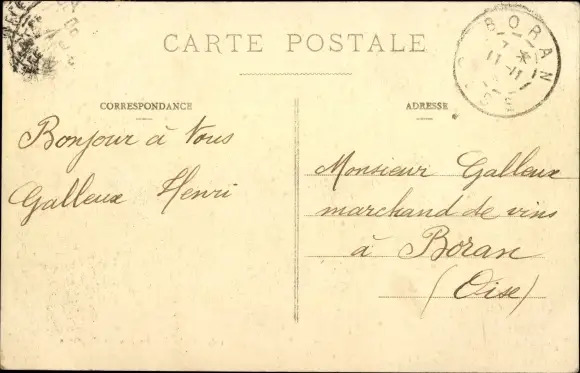 CARTE POSTALE
BORAN
7 *
11-11
OISE
CORRESPONDANCE
ADRESSE
Bonjour à tous
Galleux Henri
Monsieur Galleux
marchand de vins
à Boran
(Oise)